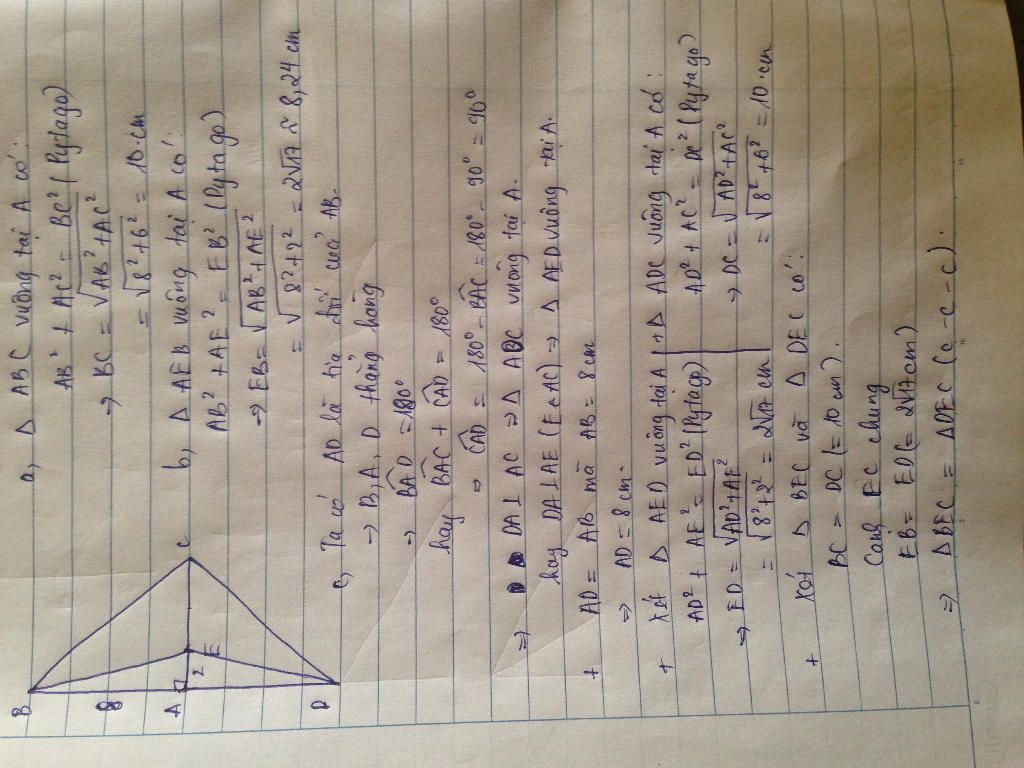 a, Δ ABC vuông tại A có:
AB² + AC² = BC² (Pytago)
→ BC = √AB² + AC²
= √8² + 6² = 10 cm
b, Δ AEB vuông tại A có:
AB² + AE² = EB² (Pytago)
→ EB = √AB² + AE²
= √8² + 2² = 2√17 ≈ 8,24 cm
B
8
A
2
E
C
D
c, Ta có AD là tia đối của AB.
→ B, A, D thẳng hàng
→ BAD = 180°
hay BAC + CAD = 180°
→ CAD = 180° - BAC = 180° - 90° = 90°
⇒ DA ⊥ AC ⇒ Δ ADC vuông tại A.
hay DA ⊥ AE (E ∈ AC) ⇒ Δ AED vuông tại A.
+ AD = AB mà AB = 8 cm
⇒ AD = 8 cm.
+ Xét Δ AED vuông tại A
AD² + AE² = ED² (Pytago)
→ ED = √AD² + AE²
= √8² + 2² = 2√17 cm
+ Δ ADC vuông tại A có:
AD² + AC² = DC² (Pytago)
→ DC = √AD² + AC²
= √8² + 6² = 10 cm
+ Xét Δ BEC và Δ DEC có:
BC = DC (= 10 cm).
Cạnh EC chung
EB = ED (= 2√17 cm)
⇒ Δ BEC = Δ DEC (c - c - c).